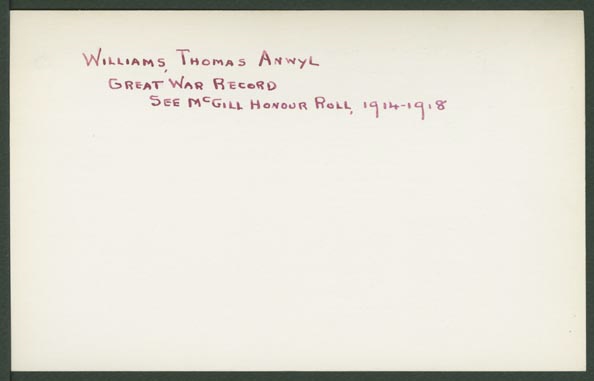 Williams, Thomas Anwyl
Great War Record
See McGill Honour Roll, 1914-1918